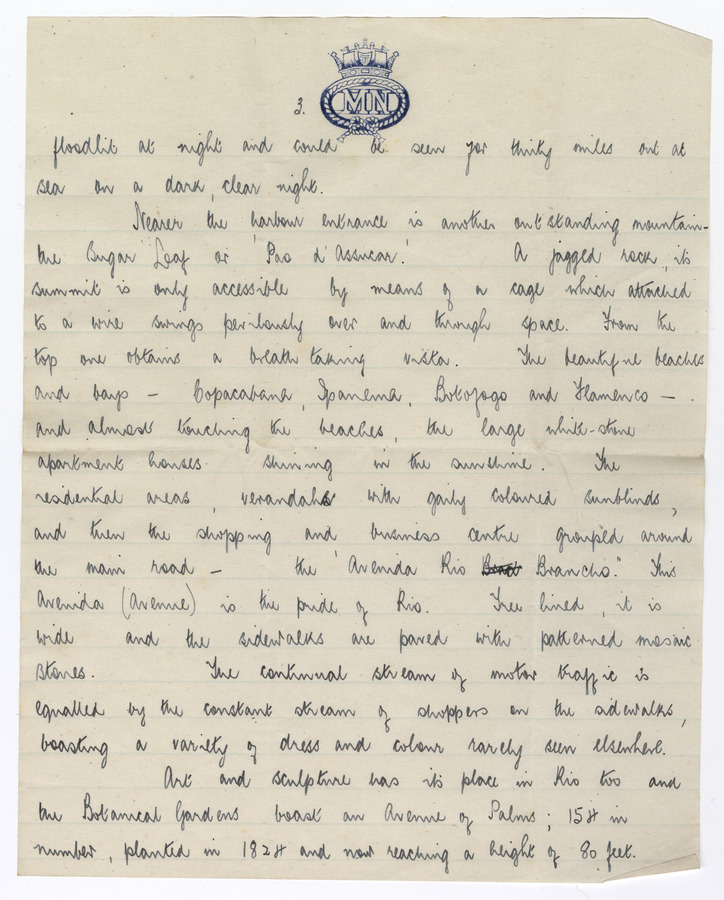 MN
3.
floodlit at night and could be seen for thirty miles out at
sea on a dark, clear night.
Nearer the harbour entrance is another outstanding mountain-
the Sugar Loaf or 'Pao d'Assucar'. A jagged rock, its
summit is only accessible by means of a cage which attached
to a wire swings perilously over and through space. From the
top one obtains a breath taking vista. The beautiful beaches
and bays - Copacabana, Ipanema, Botofogo and Flamenco -
and almost touching the beaches, the large white-stone
apartment houses shining in the sunshine. The
residential areas, verandahs with gaily coloured sunblinds,
and then the shopping and business centre grouped around
the main road - the "Avenida Rio Brancho." This
Avenida (Avenue) is the pride of Rio. Tree lined, it is
wide and the sidewalks are paved with patterned mosaic
stones. The continual stream of motor traffic is
equalled by the constant stream of shoppers on the sidewalks,
boasting a variety of dress and colour rarely seen elsewhere.
Art and sculpture has its place in Rio too and
the Botanical Gardens boast an Avenue of Palms; 154 in
number, planted in 1824 and now reaching a height of 80 feet.